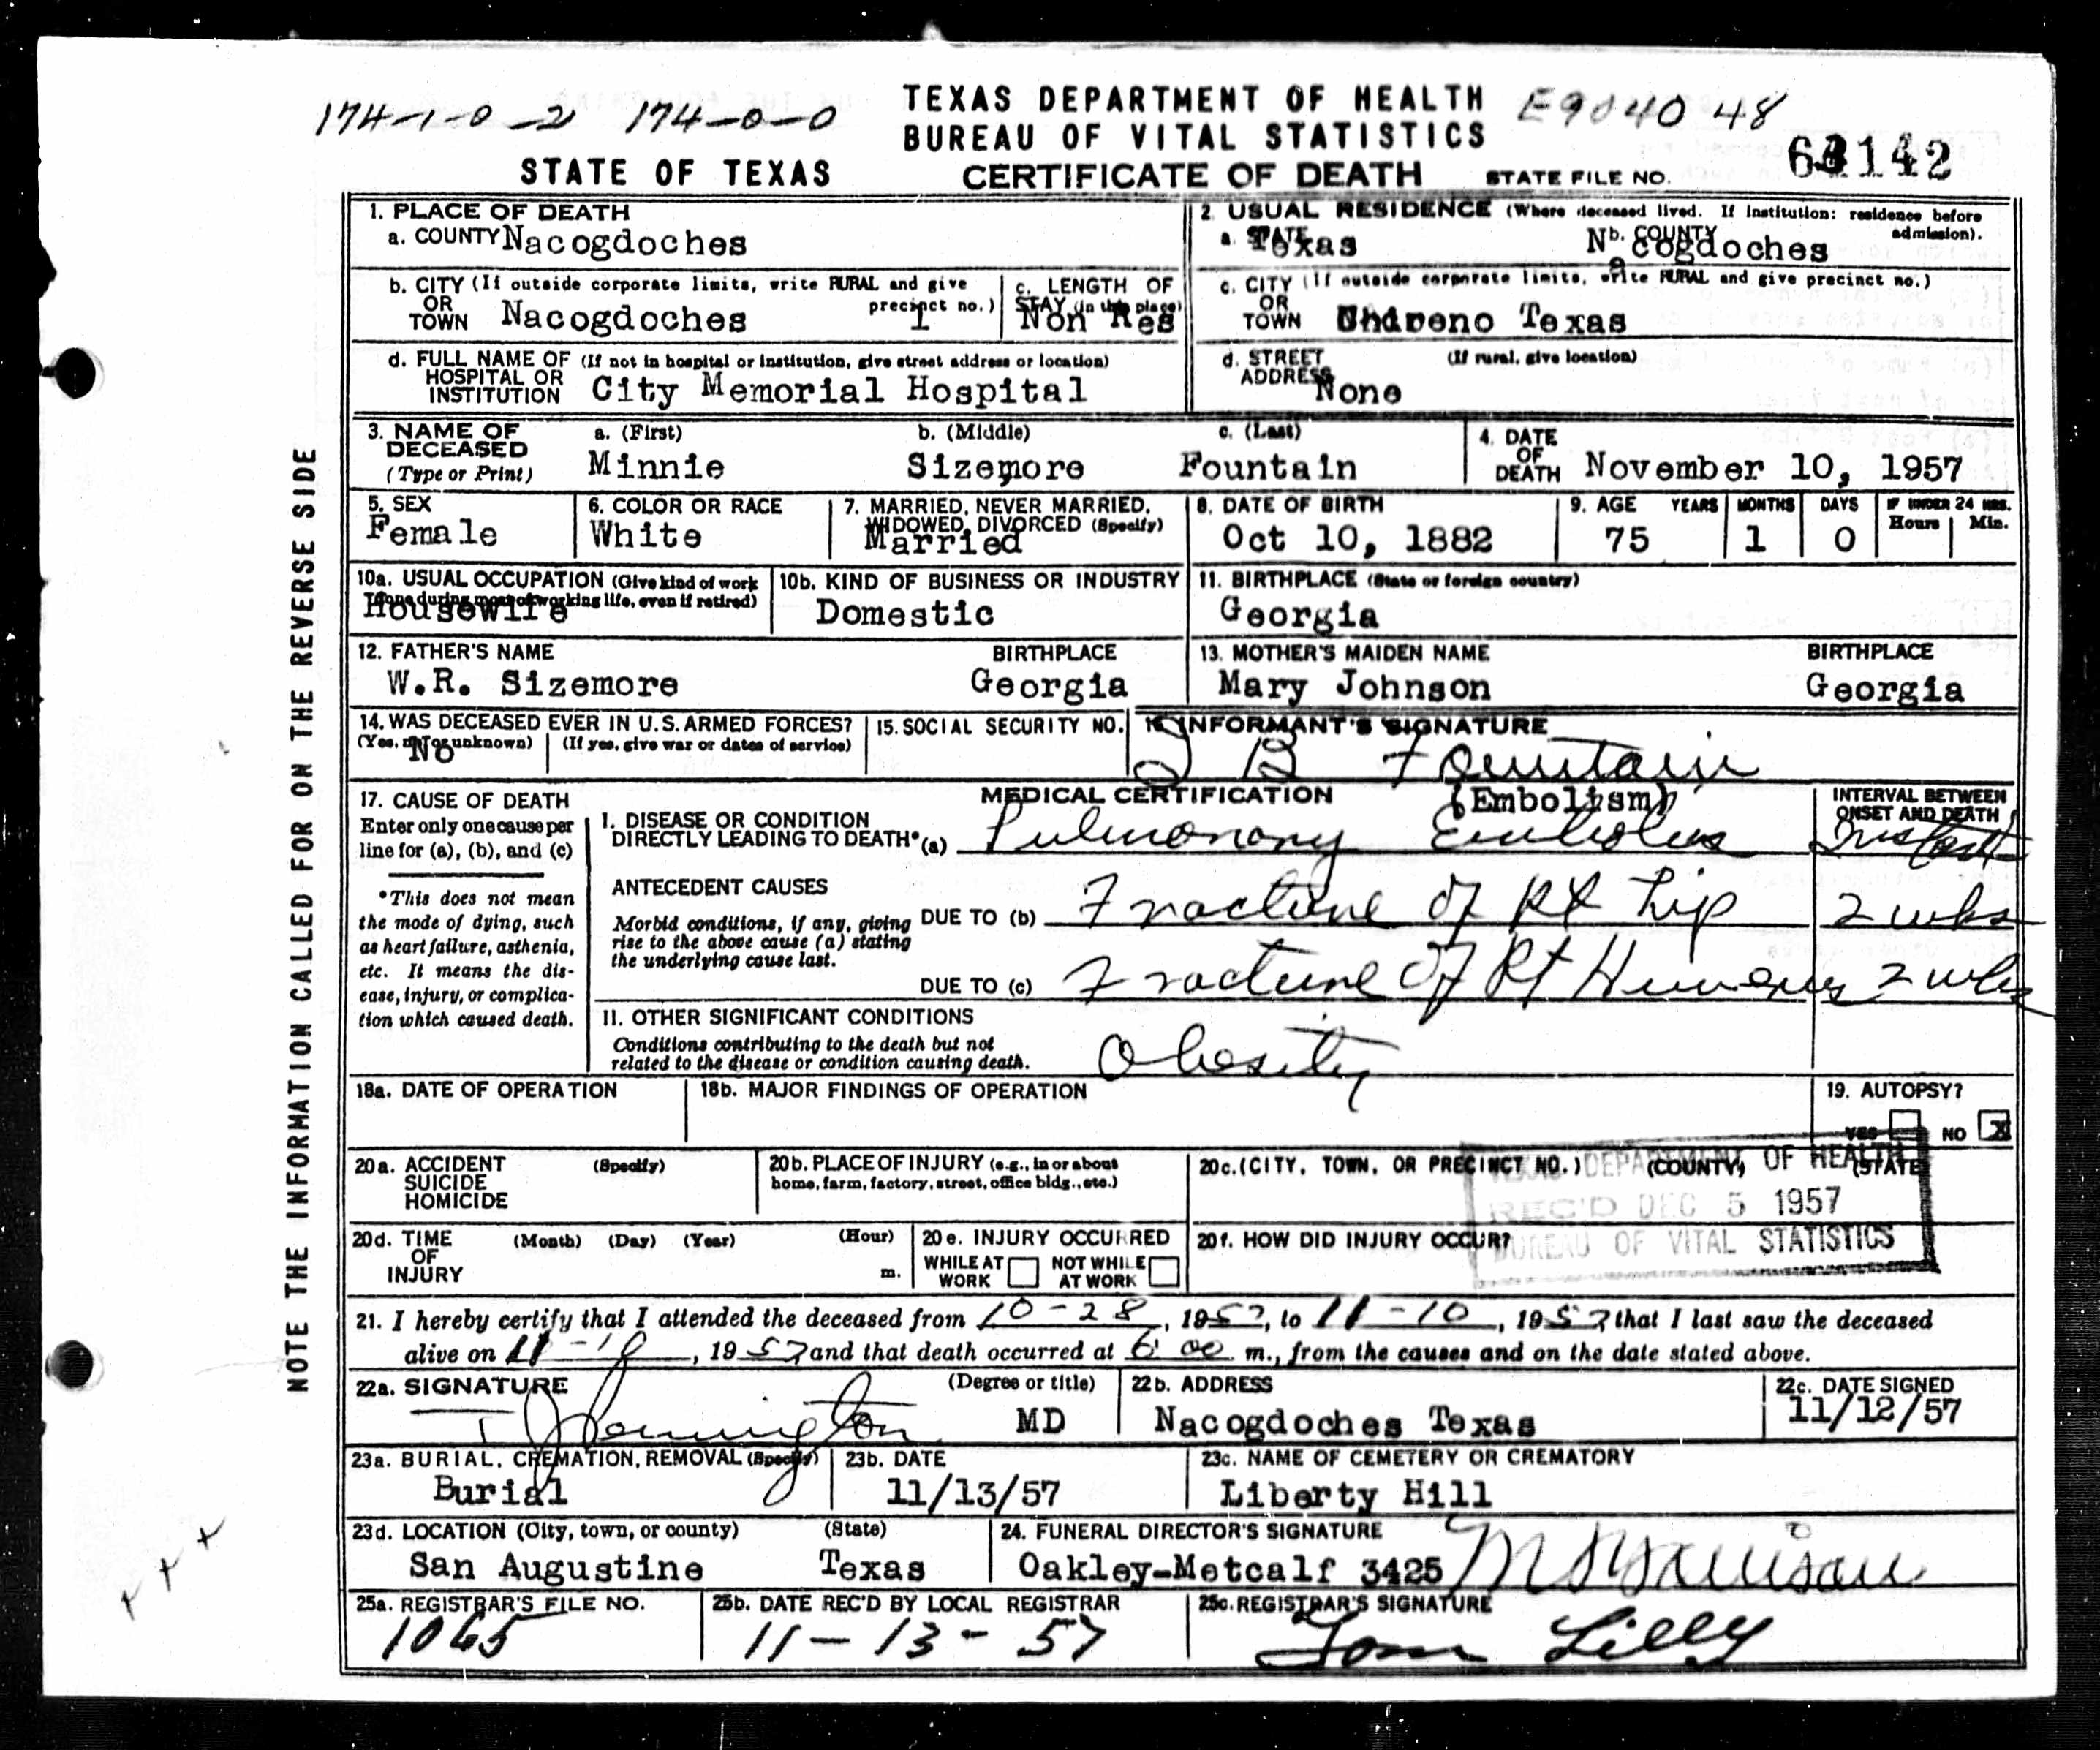 174-1-0-2 174-0-0
TEXAS DEPARTMENT OF HEALTH E9040 48
BUREAU OF VITAL STATISTICS
STATE OF TEXAS CERTIFICATE OF DEATH STATE FILE NO. 64142
NOTE THE INFORMATION CALLED FOR ON THE REVERSE SIDE
1. PLACE OF DEATH
a. COUNTY Nacogdoches
2. USUAL RESIDENCE (Where deceased lived. If institution: residence before admission).
a. STATE Texas b. COUNTY Nacogdoches
b. CITY (If outside corporate limits, write RURAL and give precinct no.) OR TOWN Nacogdoches 1
c. LENGTH OF STAY (in this place) Non Res
c. CITY (If outside corporate limits, write RURAL and give precinct no.) OR TOWN Chireno Texas
d. FULL NAME OF (If not in hospital or institution, give street address or location) HOSPITAL OR INSTITUTION City Memorial Hospital
d. STREET ADDRESS (If rural, give location) None
3. NAME OF DECEASED (Type or Print) a. (First) Minnie b. (Middle) Sizemore c. (Last) Fountain
4. DATE OF DEATH November 10, 1957
5. SEX Female
6. COLOR OR RACE White
7. MARRIED, NEVER MARRIED, WIDOWED, DIVORCED (Specify) Married
8. DATE OF BIRTH Oct 10, 1882
9. AGE YEARS 75 MONTHS 1 DAYS 0 IF UNDER 24 HRS. Hours Min.
10a. USUAL OCCUPATION (Give kind of work done during most of working life, even if retired) Housewife
10b. KIND OF BUSINESS OR INDUSTRY Domestic
11. BIRTHPLACE (State or foreign country) Georgia
12. FATHER'S NAME W.R. Sizemore BIRTHPLACE Georgia
13. MOTHER'S MAIDEN NAME Mary Johnson BIRTHPLACE Georgia
14. WAS DECEASED EVER IN U.S. ARMED FORCES? (Yes, no, or unknown) No (If yes, give war or dates of service)
15. SOCIAL SECURITY NO.
16. INFORMANT'S SIGNATURE B Fountain
17. CAUSE OF DEATH
Enter only one cause per line for (a), (b), and (c)
*This does not mean the mode of dying, such as heart failure, asthenia, etc. It means the disease, injury, or complication which caused death.
MEDICAL CERTIFICATION
INTERVAL BETWEEN ONSET AND DEATH
I. DISEASE OR CONDITION DIRECTLY LEADING TO DEATH* (a) Pulmonary Embolus (Embolism) Instant
ANTECEDENT CAUSES
Morbid conditions, if any, giving rise to the above cause (a) stating the underlying cause last.
DUE TO (b) Fracture of Rt Hip 2 wks
DUE TO (c) Fracture of Rt Humerus 2 wks
II. OTHER SIGNIFICANT CONDITIONS
Conditions contributing to the death but not related to the disease or condition causing death. Obesity
18a. DATE OF OPERATION
18b. MAJOR FINDINGS OF OPERATION
19. AUTOPSY? YES NO X
20a. ACCIDENT SUICIDE HOMICIDE (Specify)
20b. PLACE OF INJURY (e.g., in or about home, farm, factory, street, office bldg., etc.)
20c. (CITY, TOWN, OR PRECINCT NO.) (COUNTY) (STATE)
TEXAS DEPARTMENT OF HEALTH
REC'D DEC 5 1957
BUREAU OF VITAL STATISTICS
20d. TIME OF INJURY (Month) (Day) (Year) (Hour) m.
20e. INJURY OCCURRED WHILE AT WORK NOT WHILE AT WORK
20f. HOW DID INJURY OCCUR?
21. I hereby certify that I attended the deceased from 10-28, 1957, to 11-10, 1957 that I last saw the deceased
alive on 11-10, 1957 and that death occurred at 6:00 m., from the causes and on the date stated above.
22a. SIGNATURE Pennington (Degree or title) MD
22b. ADDRESS Nacogdoches Texas
22c. DATE SIGNED 11/12/57
23a. BURIAL, CREMATION, REMOVAL (Specify) Burial
23b. DATE 11/13/57
23c. NAME OF CEMETERY OR CREMATORY Liberty Hill
23d. LOCATION (City, town, or county) San Augustine (State) Texas
24. FUNERAL DIRECTOR'S SIGNATURE Oakley-Metcalf 3425
25a. REGISTRAR'S FILE NO. 1065
25b. DATE REC'D BY LOCAL REGISTRAR 11-13-57
25c. REGISTRAR'S SIGNATURE Tom Lilly